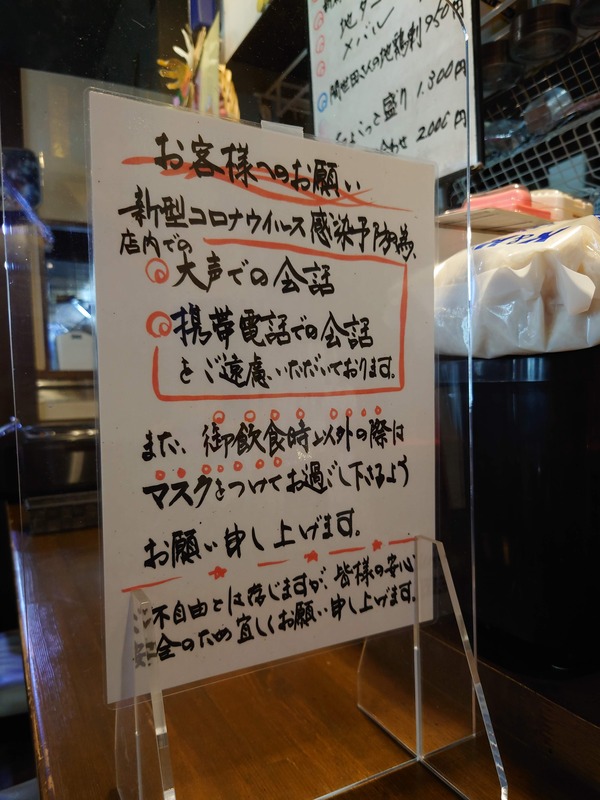 地ダ
メバル 950円
関世田さんの地鶏刺
ちょこっと盛り 1.300円
合わせ 2000円
お客様へのお願い
新型コロナウイルス感染予防為、
店内での
大声での会話
携帯電話での会話
をご遠慮いただいております。
また、御飲食時以外の際は
マスクをつけてお過ごし下さるよう
お願い申し上げます。
ご不自由とは存じますが、皆様の安心
安全のため宜しくお願い申し上げます。